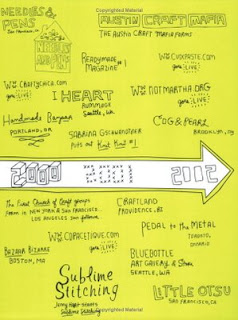 NEEDLES &
PENS
San Francisco, CA
NEEDLES
AND PENS
AUSTIN CRAFT MAFIA
THE AUSTIN CRAFT MAFIA FORMS
READYMADE
MAGAZINE #1
WWW.CRAFTYCHICA.COM
goes LIVE!
I HEART
RUMMAGE
Seattle, WA
goes LIVE!
WWW.NOTMARTHA.ORG
goes LIVE!
Handmade Bazaar
PORTLAND, OR
SABRINA GSCHWANDTNER
puts out Knit Knit #1
COG & PEARL
BROOKLYN, NY
2000
2001
2002
The First Church of Craft groups
form in NEW YORK & SAN FRANCISCO.
LOS ANGELES soon follows.
CRAFTLAND
PROVIDENCE, RI
PEDAL to the METAL
TORONTO,
ONTARIO
WWW.COPACETIQUE.COM
goes LIVE!
BAZAAR BIZARRE
BOSTON, MA
BLUEBOTTLE
ART GALLERY & Store
SEATTLE, WA
Sublime
Stitching
Jenny Hart starts
Sublime Stitching
LITTLE OTSU
SAN FRANCISCO, CA